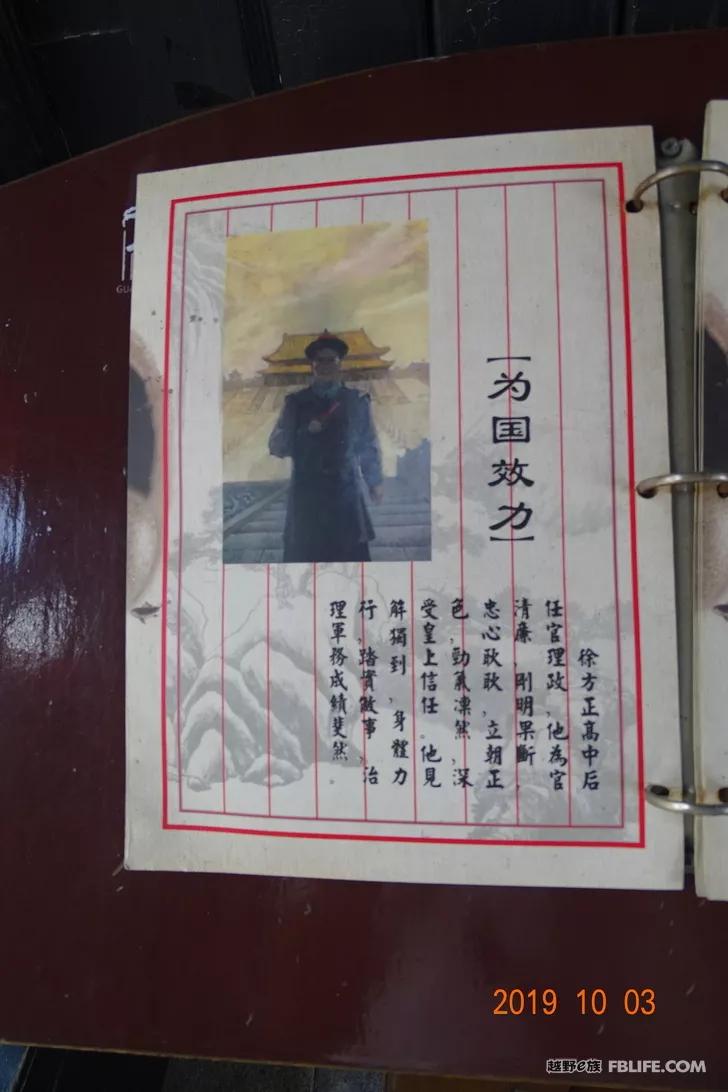 【为国效力】
徐方正高中后
任官理政,他為官
清廉、剛明果斷、
忠心耿耿,立朝正
色,勁氣凜然,深
受皇上信任。他見
解獨到,身體力
行,踏實做事,治
理軍務成績斐然。
GU
2019 10 03
越野e族 FBLIFE.COM